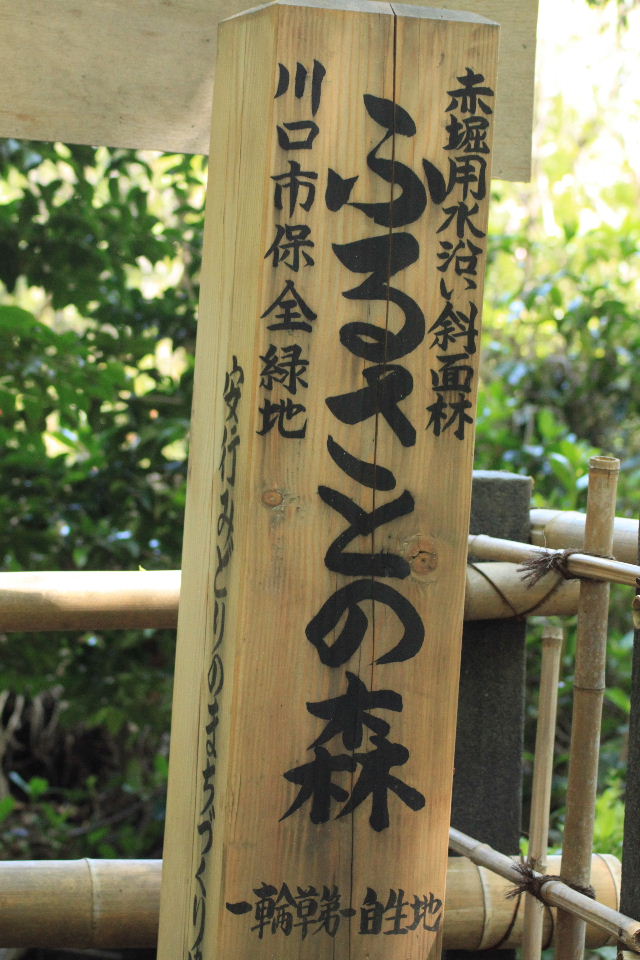 赤堀用水沿い斜面林
ふるさとの森
川口市保全緑地
一輪草第一自生地
安行みどりのまちづくり